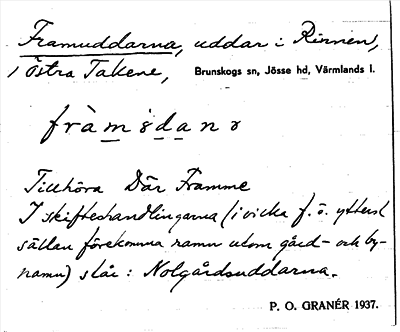 Framuddarna, uddar i Rinnen,
i Östra Takene, Brunskogs sn, Jösse hd, Värmlands l.
Tillhöra Där Framme
I skifteshandlingarna (i vilka f. ö. ytterst
sällan förekomma namn utom gård- och by-
namn) står: Nolgårdsuddarna.
P. O. GRANÉR 1937.